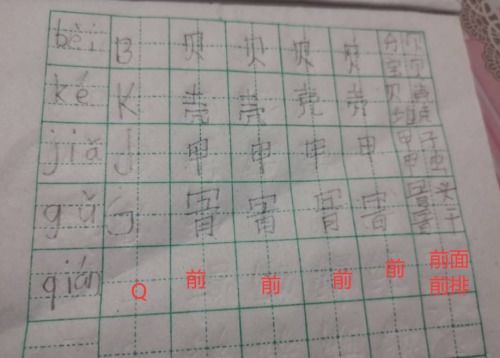 bèi B 贝 贝 贝 贝 分贝
ké K 壳 壳 壳 壳
jiǎ J 甲 甲 甲 甲 甲子
甲虫
gǔ G 骨 骨 骨 骨 骨头
骨干
qián Q 前 前 前 前 前面
前排